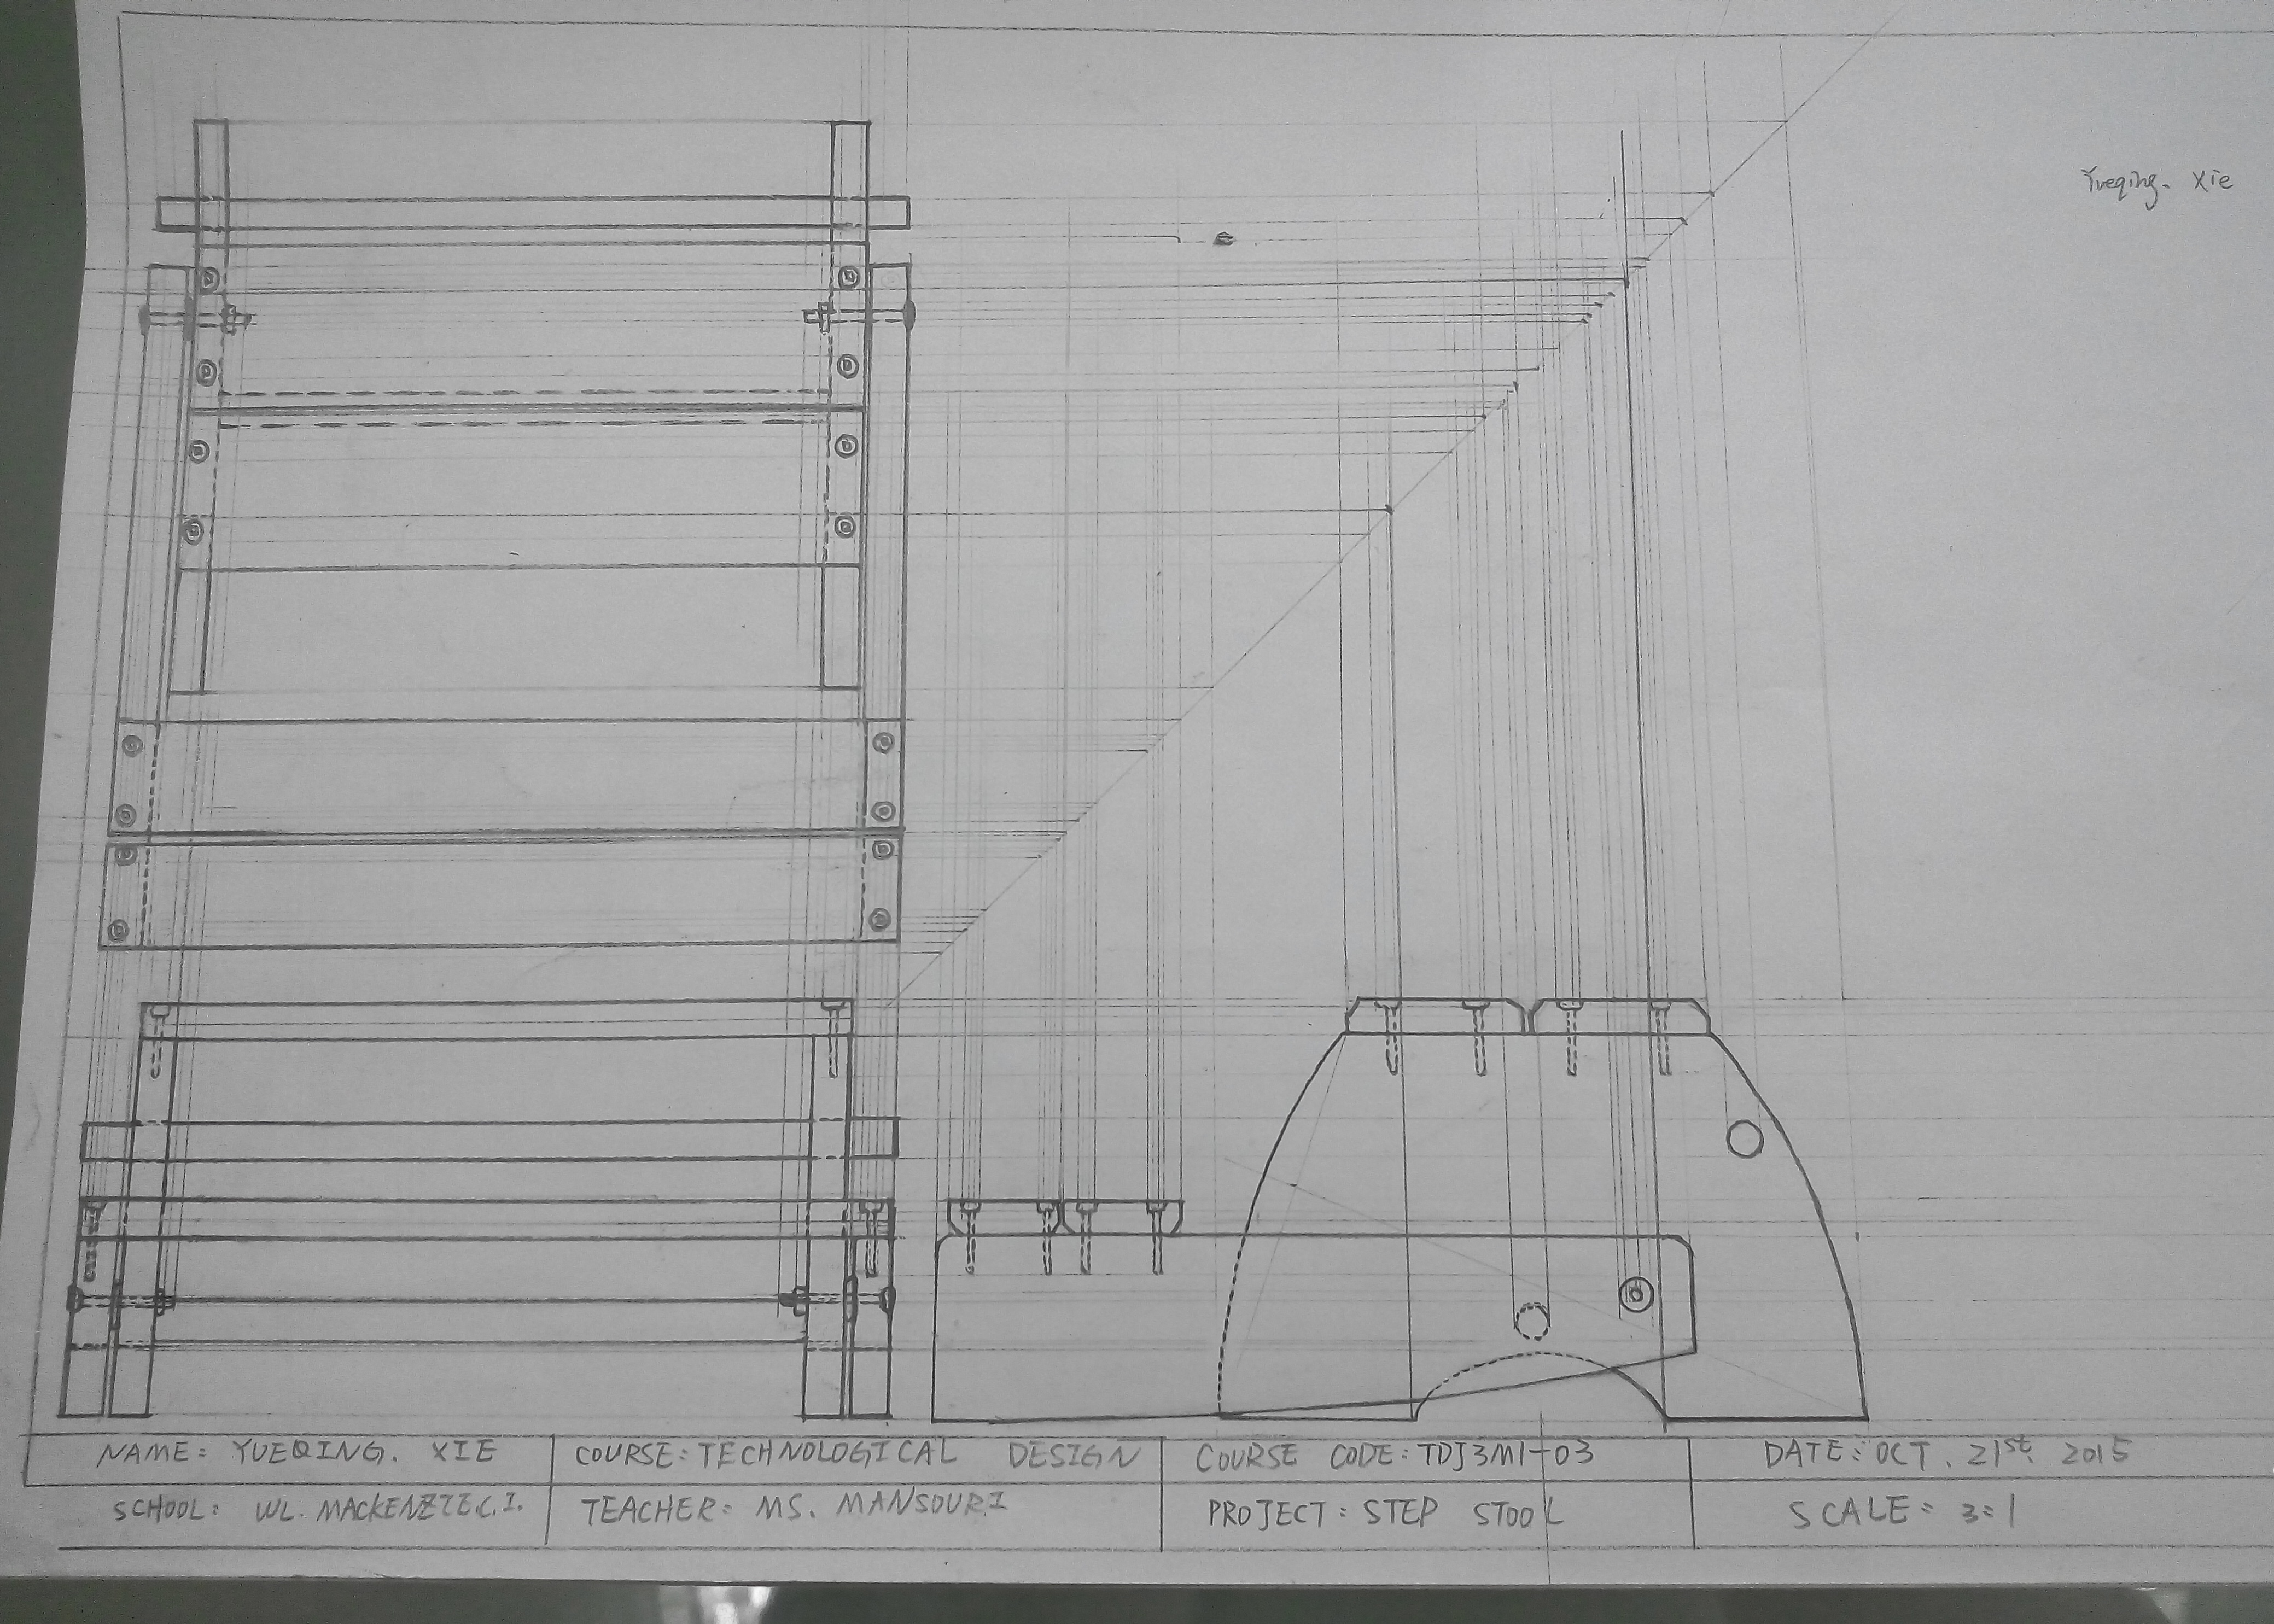 Yueqing. Xie
NAME: YUEQING. XIE COURSE: TECHNOLOGICAL DESIGN COURSE CODE: TDJ3M1-03 DATE: OCT. 21st. 2015
SCHOOL: WL. MACKENZIE C.I. TEACHER: MS. MANSOURI PROJECT: STEP STOOL SCALE: 3:1